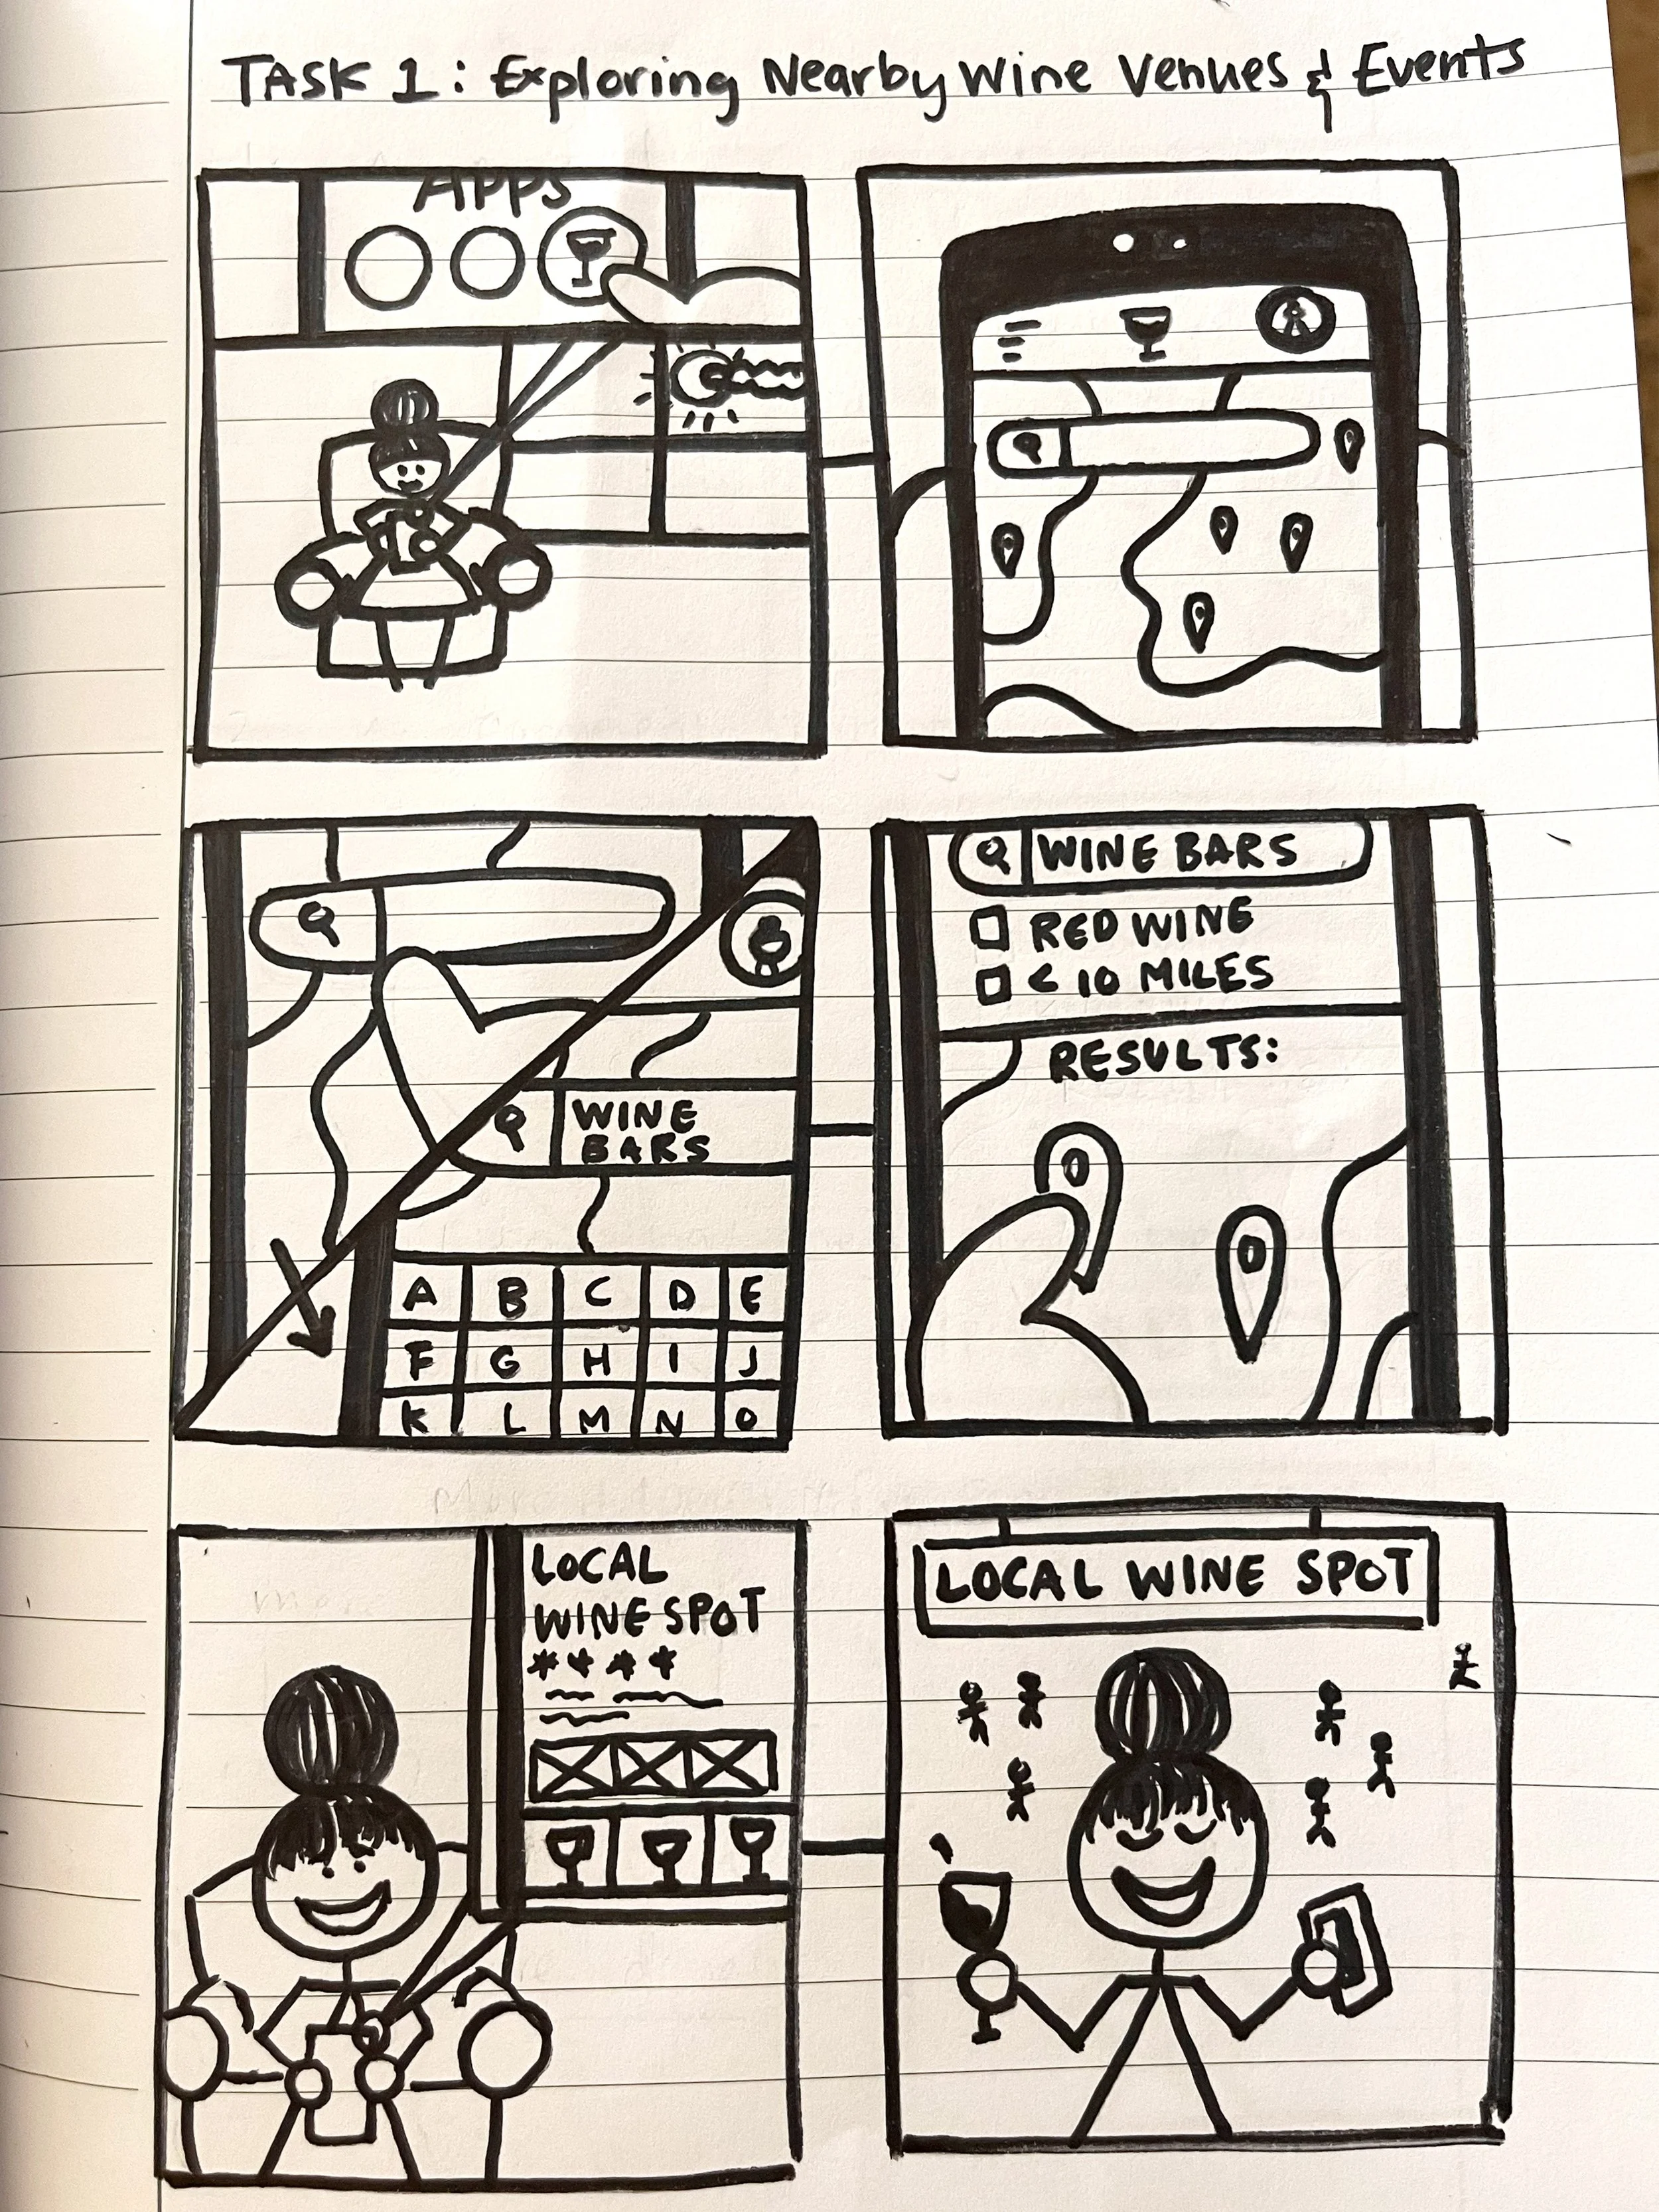 TASK 1: Exploring Nearby Wine Venues & Events
APPS
WINE
BARS
A B C D E
F G H I J
K L M N O
WINE BARS
RED WINE
< 10 MILES
RESULTS:
LOCAL
WINE SPOT
LOCAL WINE SPOT